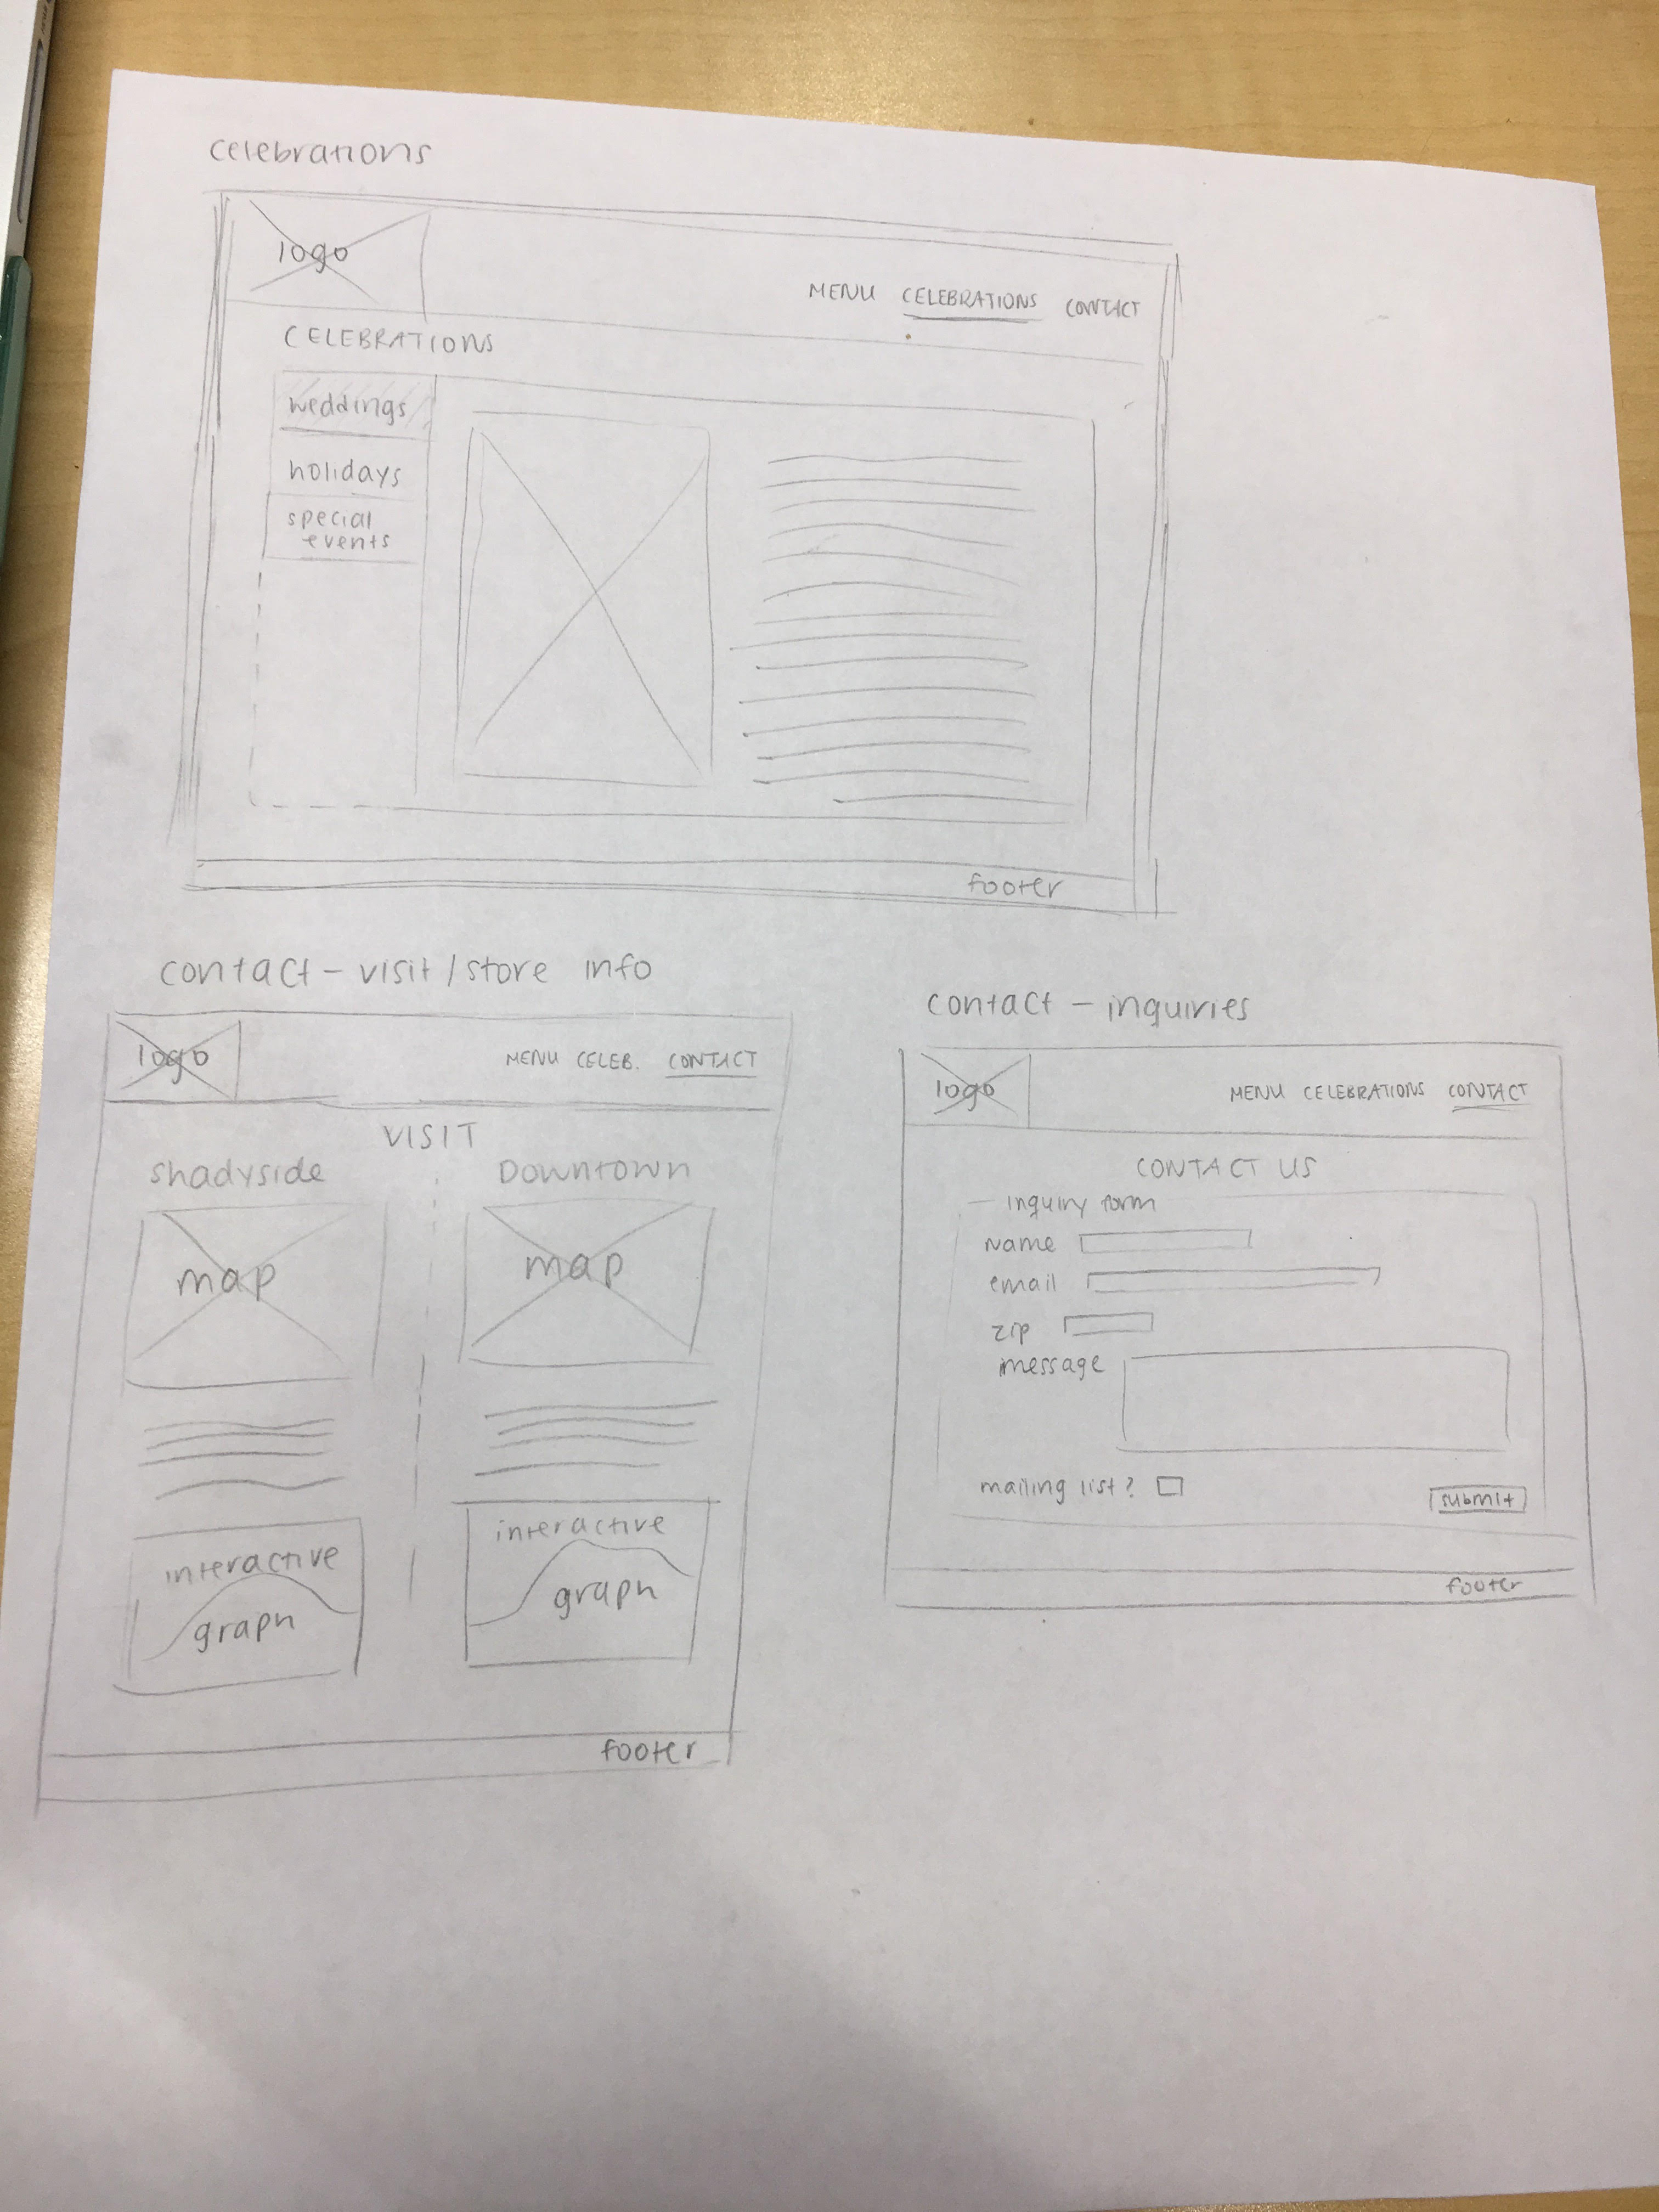 celebrations
logo
MENU CELEBRATIONS CONTACT
CELEBRATIONS
weddings
holidays
special
events
footer
contact - visit / store info
logo
MENU CELEB. CONTACT
VISIT
shadyside
Downtown
map
map
interactive
graph
interactive
graph
footer
contact - inquiries
logo
MENU CELEBRATIONS CONTACT
CONTACT US
inquiry form
name
email
zip
message
mailing list?
submit
footer